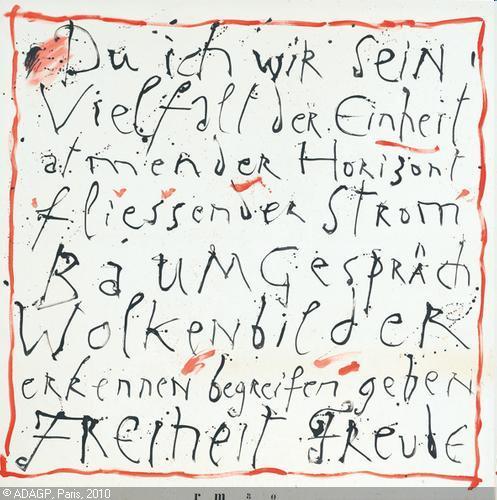 Du ich wir sein
Vielfalt der Einheit
atmender Horizont
fliessender Strom
BaumGespräch
Wolkenbilder
erkennen begreifen geben
Freiheit Freude
© ADAGP, Paris, 2010